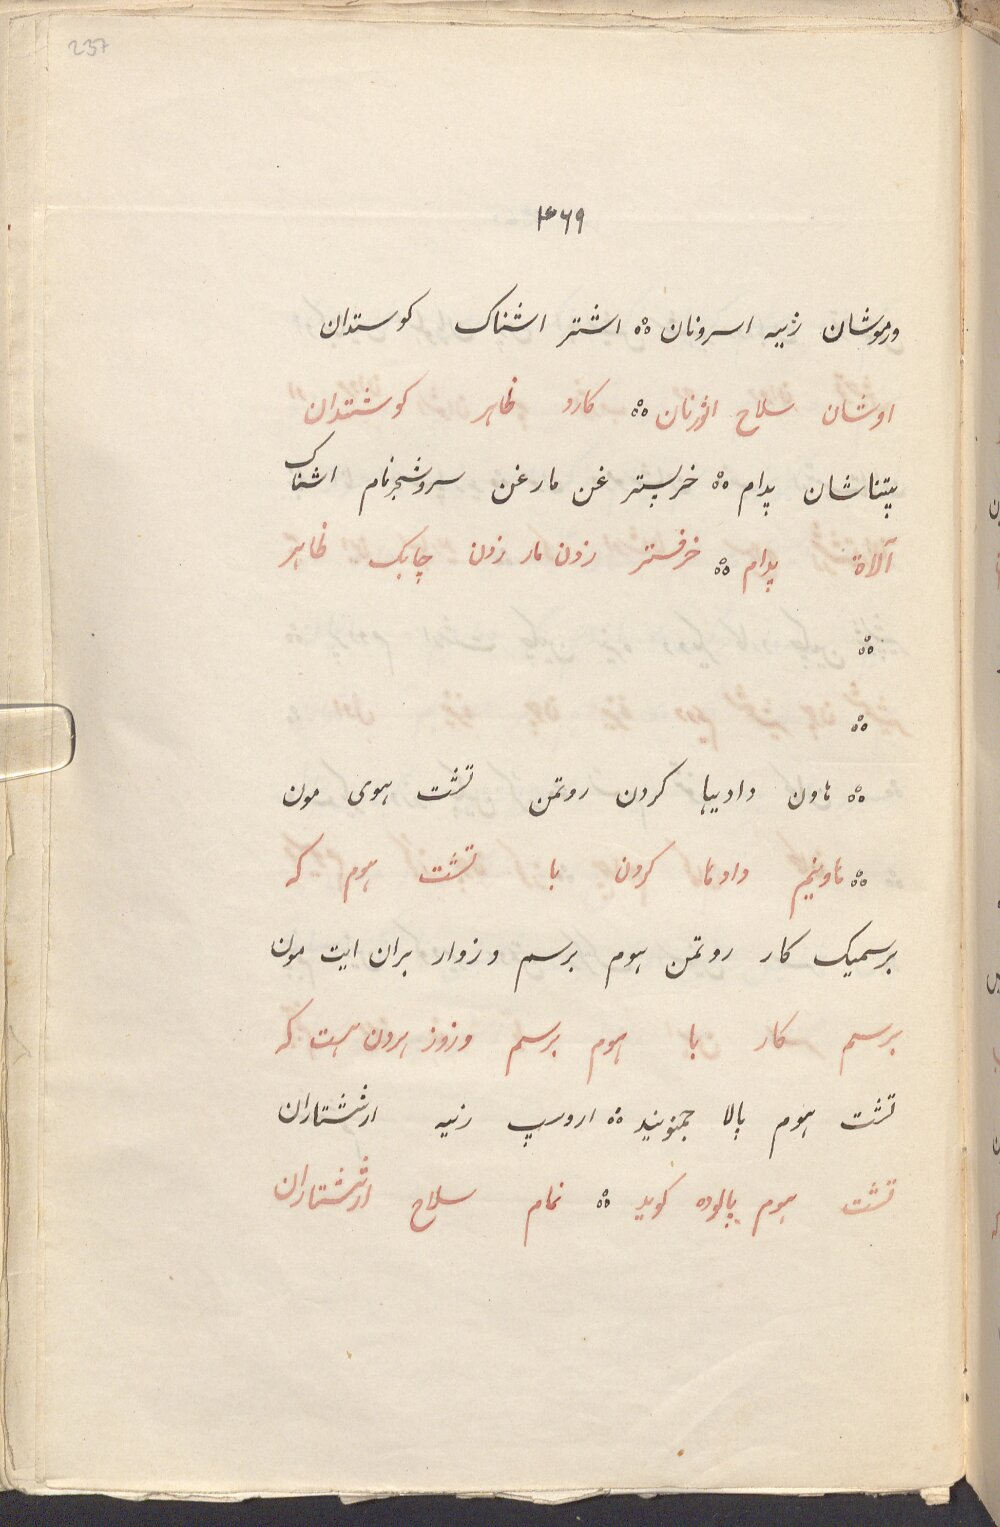 237
۴۶۹
ورموشان زییه اسرونان ஃ اشتر اشناک کوستدان
اوشان سلاح اثورنان ஃ کارد ظاهر کوشتدان
پیتناشان پدام ஃ خرپستر غن مارغن سروشجرنام اشناک
آلاة پدام ஃ خرفستر زدن مار زدن چابک ظاهر
ஃ
ஃ
ஃ هاون دادیها کردن روتمن تشت هوی مون
ஃ هاونیم دادها کردن با تشت هوم که
برسمیک کار روتمن هوم برسم وزوار بران ایت مون
برسم کار با هوم برسم وزوز بردن هست که
تشت هوم پالا جمنونید ஃ اروسپ زنیه ارتشتاران
تشت هوم پالوده کوید ஃ تمام سلاح ارتشتاران